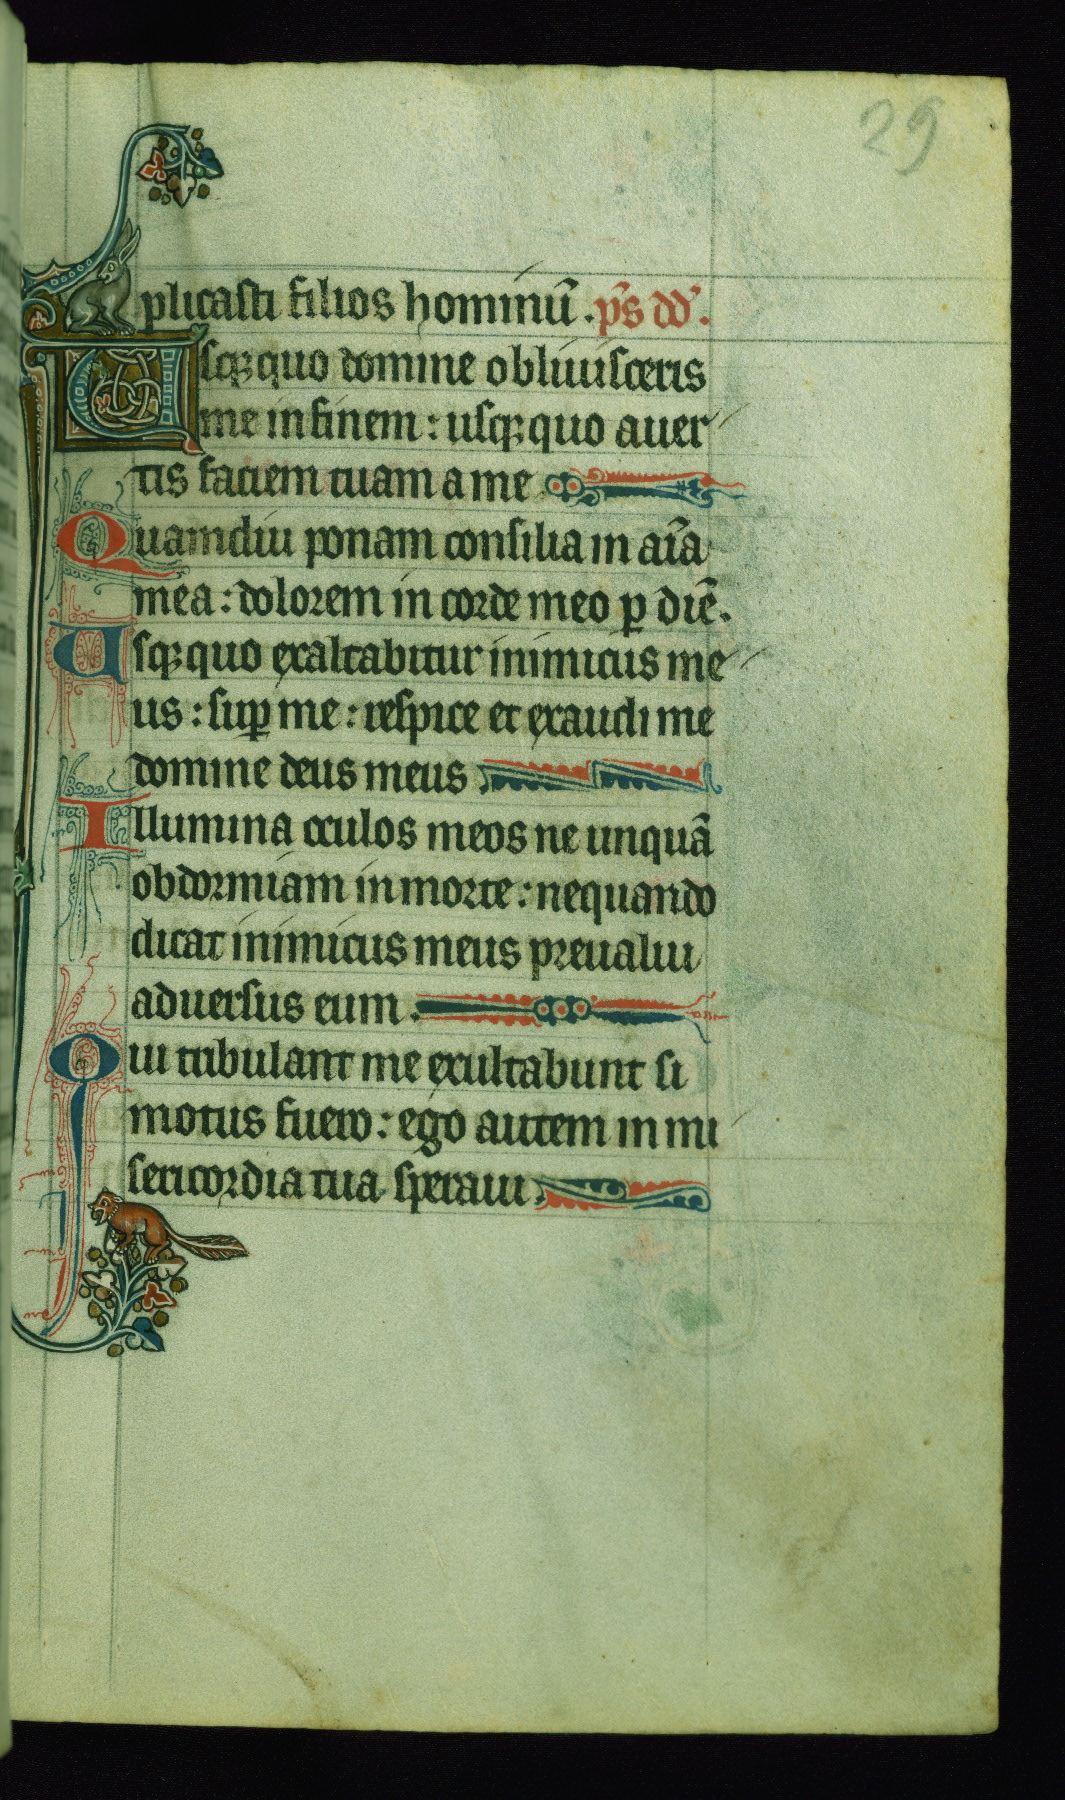 29
plicasti filios hominū. p̄s dd̕.
Usq;quo domine obliuisceris
me in finem : usq;quo auer
tis faciem tuam a me
Quamdiu ponam consilia in aīa
mea : dolorem in corde meo ꝑ diē.
Usq;quo exaltabitur inimicus me
us : suꝑ me : respice et exaudi me
domine deus meus
Illumina oculos meos ne unquā
obdormiam in morte : nequando
dicat inimicus meus preualui
aduersus eum.
Qui tribulant me exultabunt si
motus fuero : ego autem in mi
sericordia tua speraui